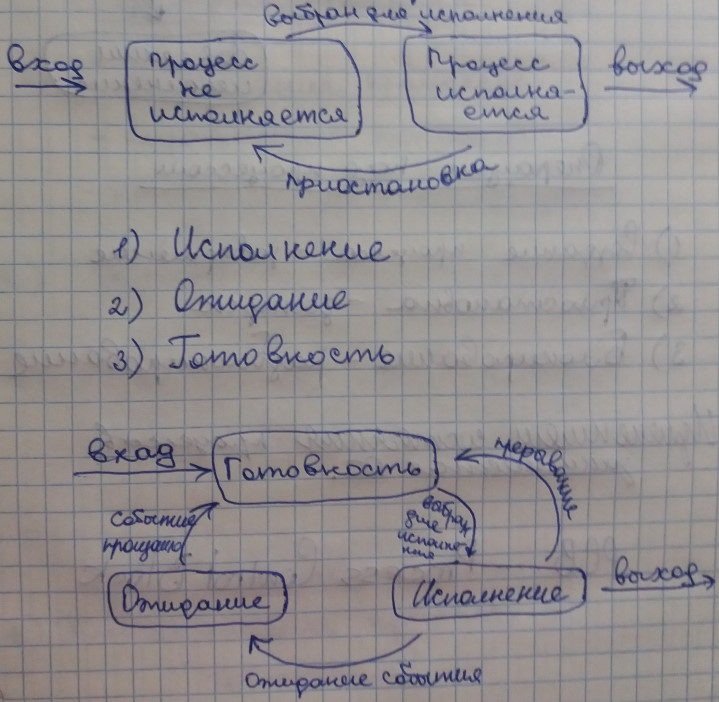 выбран для исполнения
вход
процесс
не
исполняется
Процесс
исполня-
ется
выход
приостановка
1) Исполнение
2) Ожидание
3) Готовность
вход
Готовность
прерывание
событие
произошло
выбран
для
исполне-
ния
Ожидание
Исполнение
выход
Ожидание события